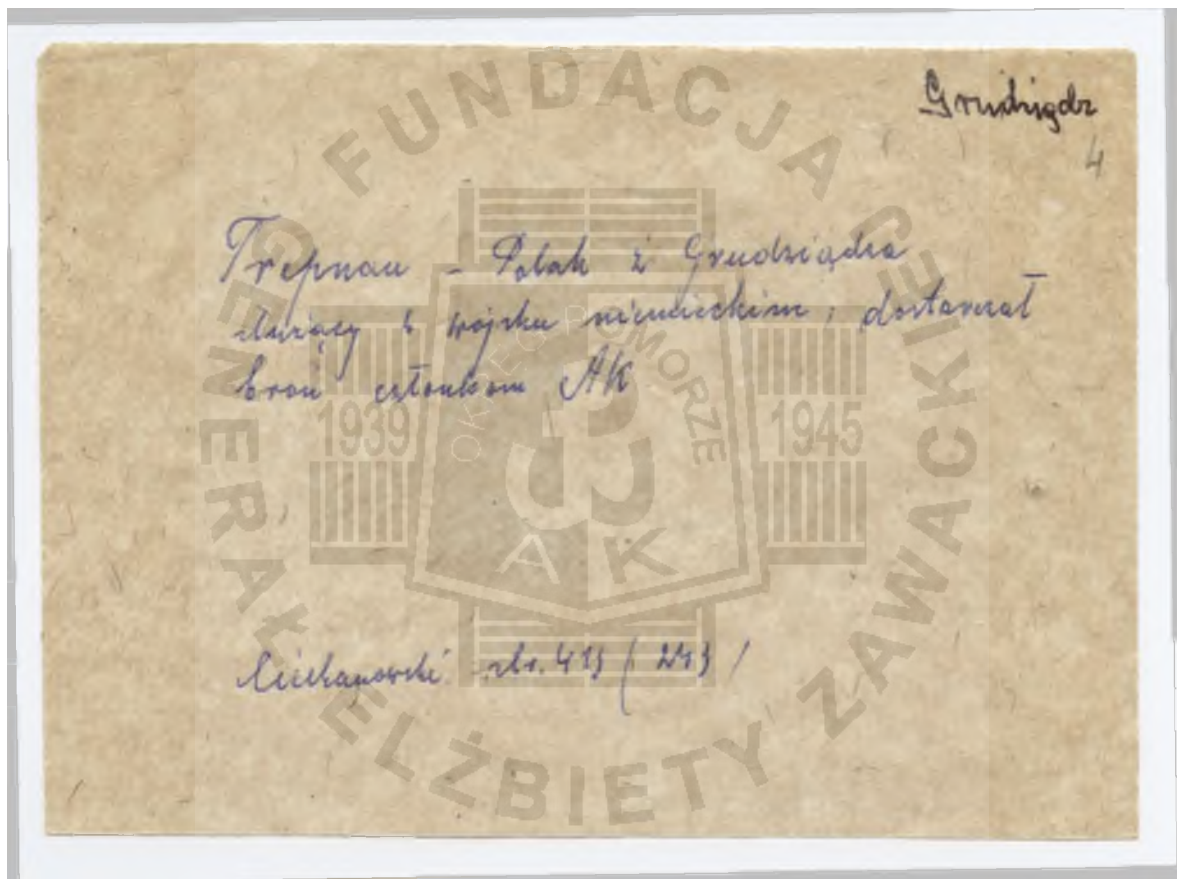 Grudziądz
4
Trepnau - Polak z Grudziądza
służący w wojsku niemieckim, dostarczał
broń członkom AK
Ciechanowski str. 413 / 243 /
FUNDACJA
GENERAŁ ELŻBIETY ZAWACKIEJ
OKRĘG POMORZE
1939
1945
AK